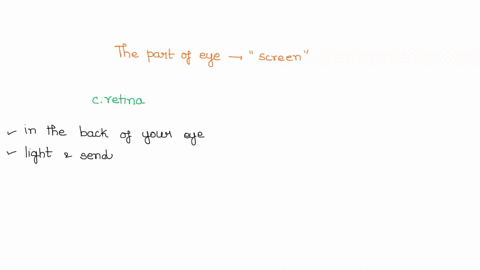 The part of eye → "screen"
c. retina
✓ in the back of your eye
✓ light & send